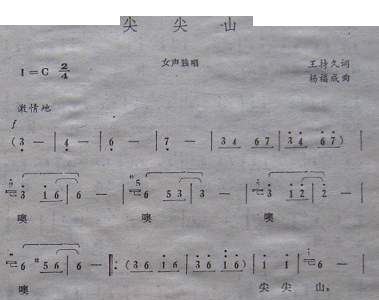 尖尖山
1=C 2/4
女声独唱
王持久词
杨福成曲
激情地
f
(3 — | 4 — | 6 — | 7 — | 34 67 | 34 67) |
3 1 6 | 6 — | 6 5 3 | 3 — | 3 1 2 | 2 — |
噢 噢 噢
6 #5 6 | 6 — |: (36 16 | 36 16) | 1 1 | 6 — |
噢 尖尖山，